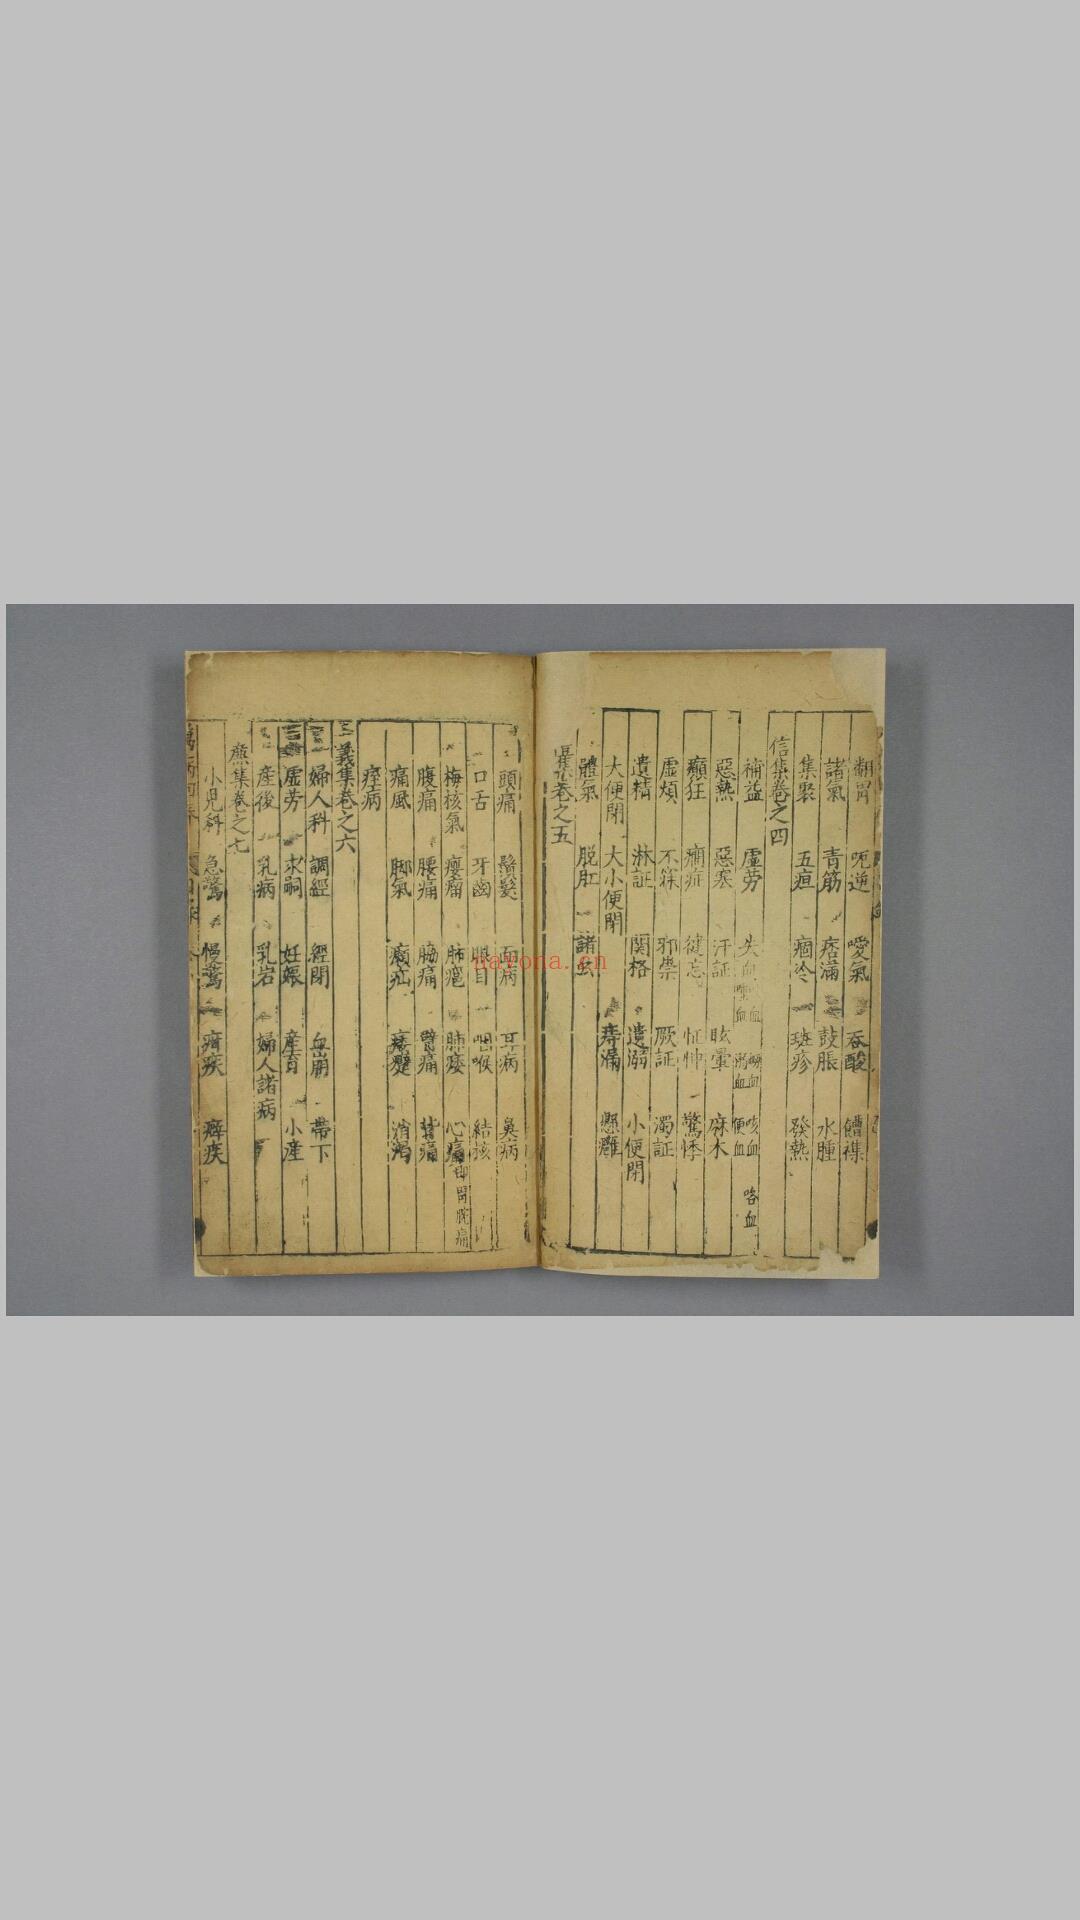 翻胃 呃逆 噯氣 吞酸 僧襍
諸氣 青筋 痞滿 鼓脹 水腫
集聚 五疸 痼冷 斑疹 發熱
信集卷之四
補益 虛勞 失血 咳血 咯血
惡熱 惡寒 汗証 眩暈 麻木
癲狂 癇症 健忘 怔忡 驚悸
虛煩 不寐 邪祟 厥証 濁証
遺精 淋証 関格 遺溺 小便閉
大便閉 大小便閉 痔漏 懸癰
體氣 脫肛
卷之五
頭痛 鬚髮 面病 耳病 鼻病
口舌 牙齒 眼目 咽喉 結核
梅核氣 癭瘤 肺 肺痿 心痛 即胃脘痛
腹痛 腰痛 脇痛 臂痛 背痛
痛風 脚氣 㿗疝 痿躄 消渴
痙病
義集卷之六
婦人科 調經 經閉 血崩 帶下
虛劳 求嗣 妊娠 產育 小產
產後 乳病 乳岩 婦人諸病
集卷之七
小児科 急驚 慢驚 疳疾 癖疾
nayona.cn